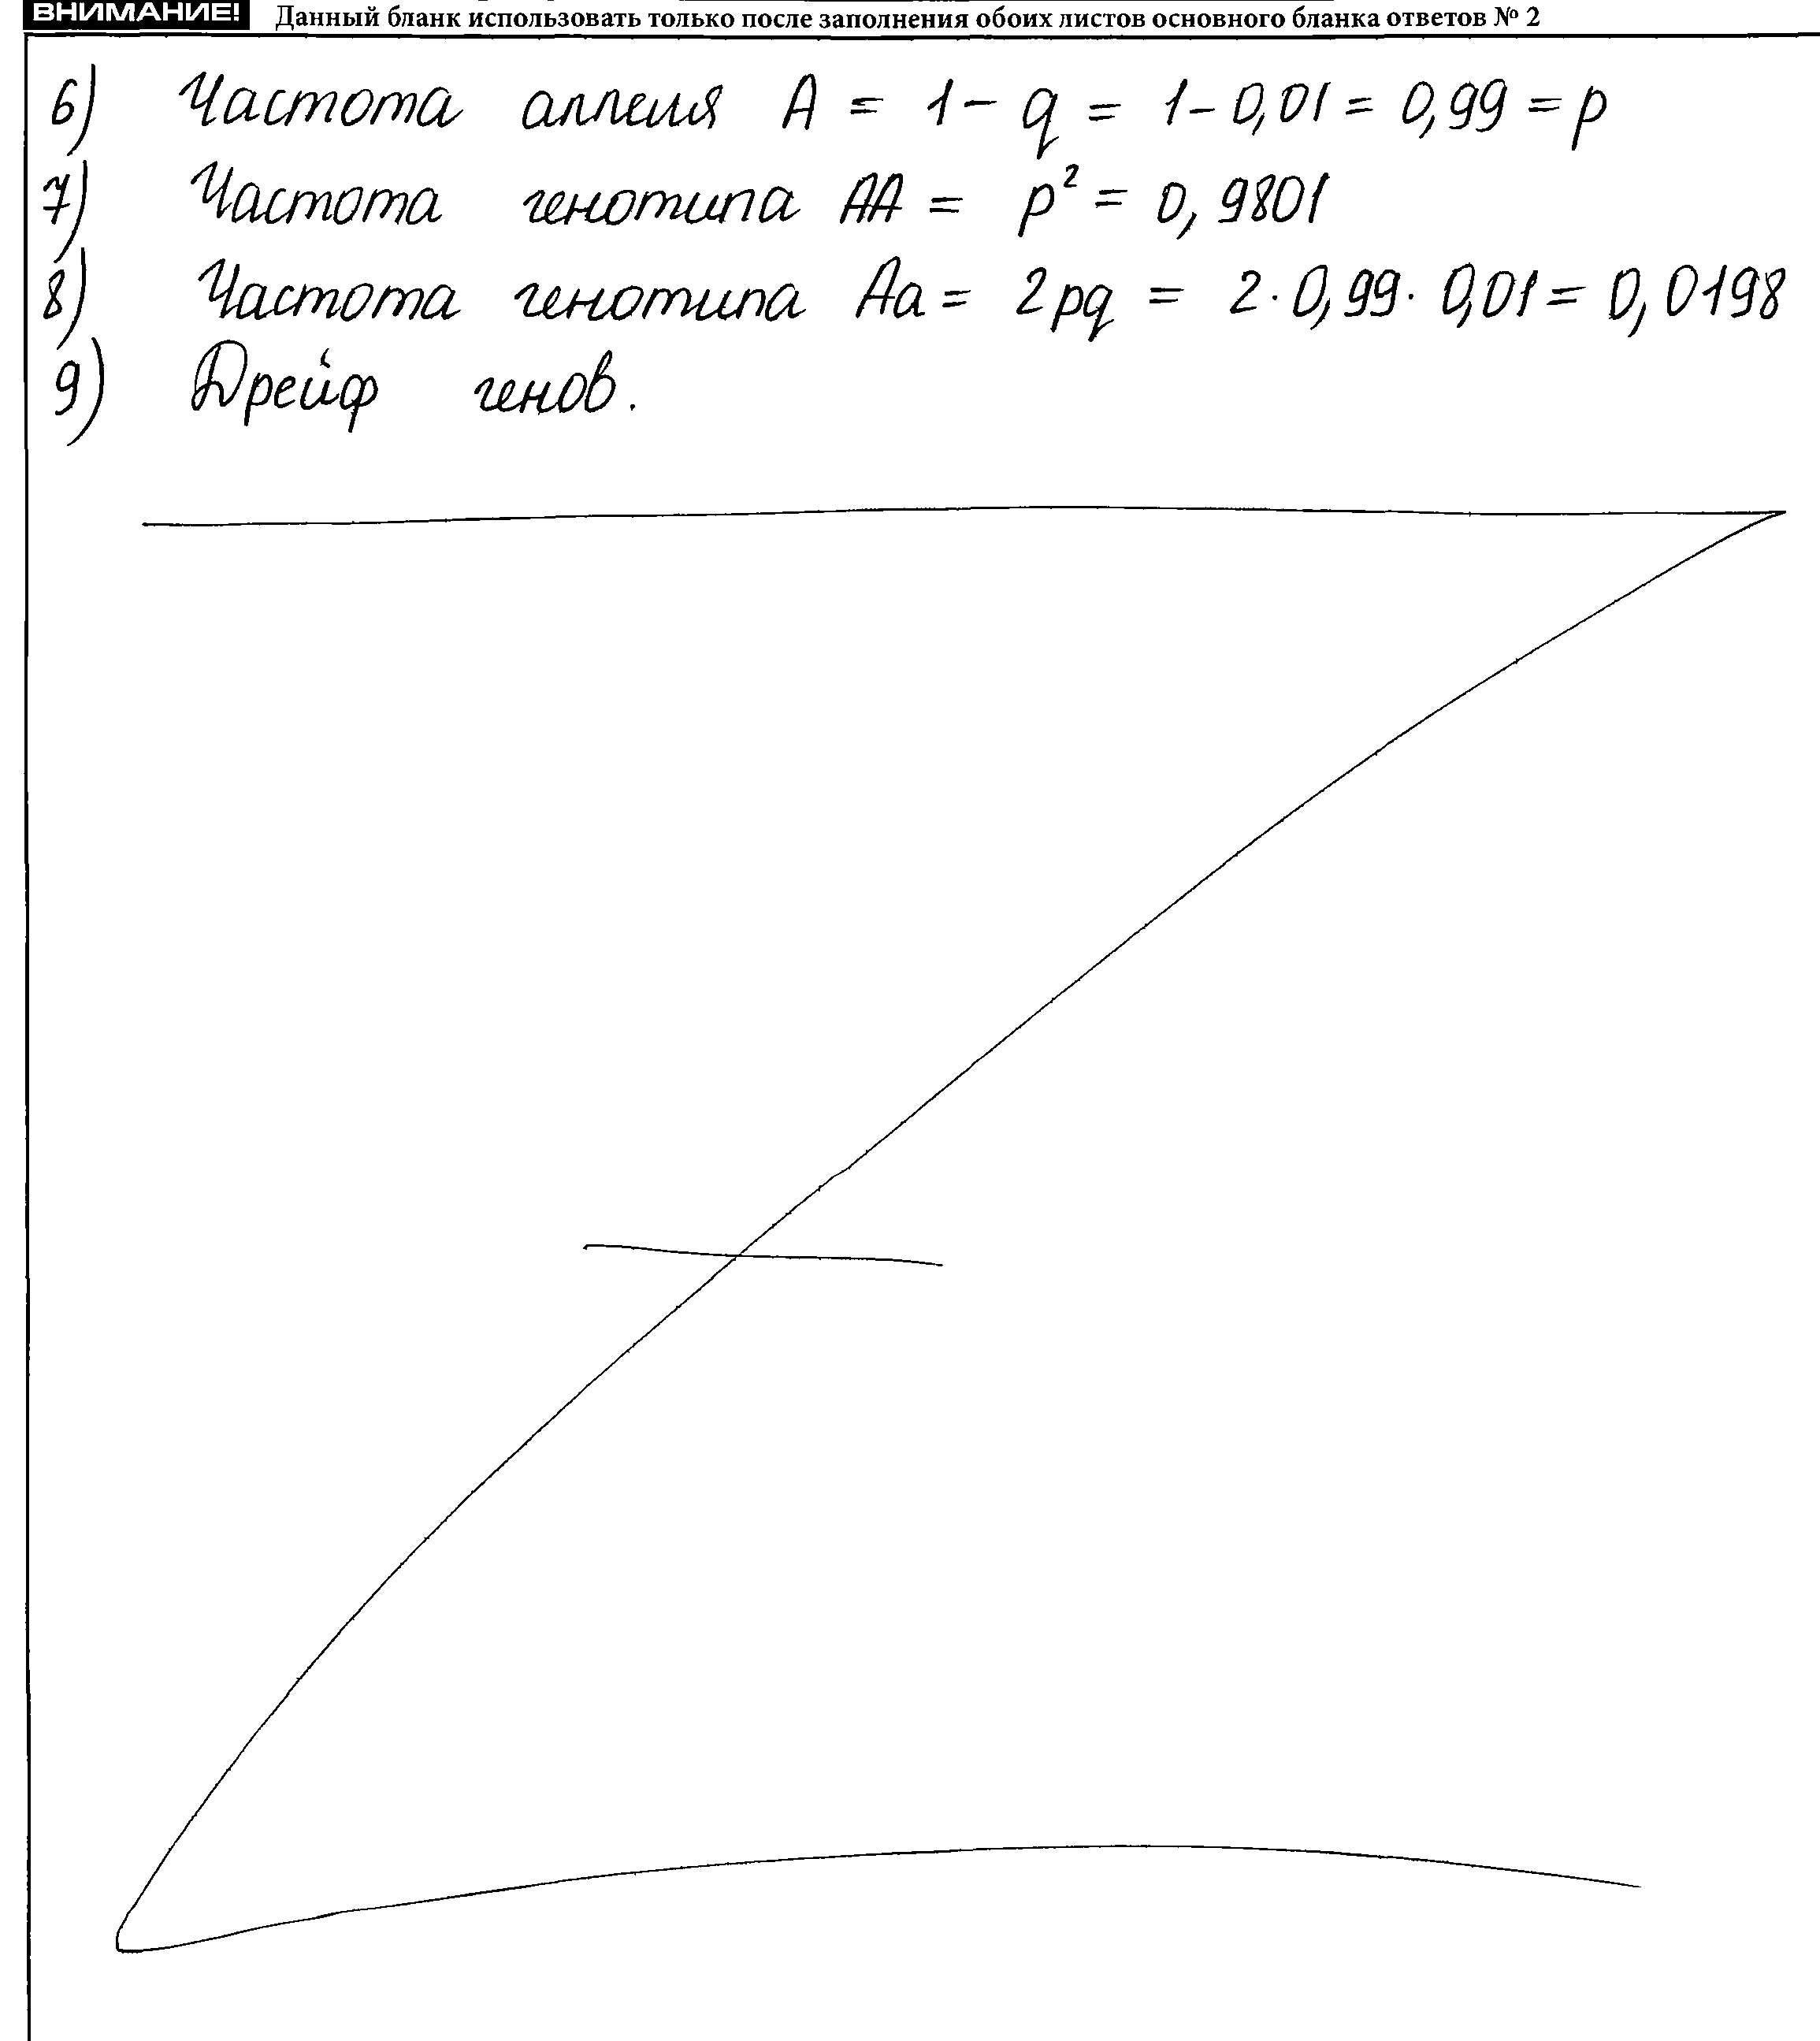 ВНИМАНИЕ! Данный бланк использовать только после заполнения обоих листов основного бланка ответов № 2
6) Частота аллеля A = 1 - q = 1 - 0,01 = 0,99 = p
7) Частота генотипа AA = p² = 0,9801
8) Частота генотипа Aa = 2pq = 2 · 0,99 · 0,01 = 0,0198
9) Дрейф генов.